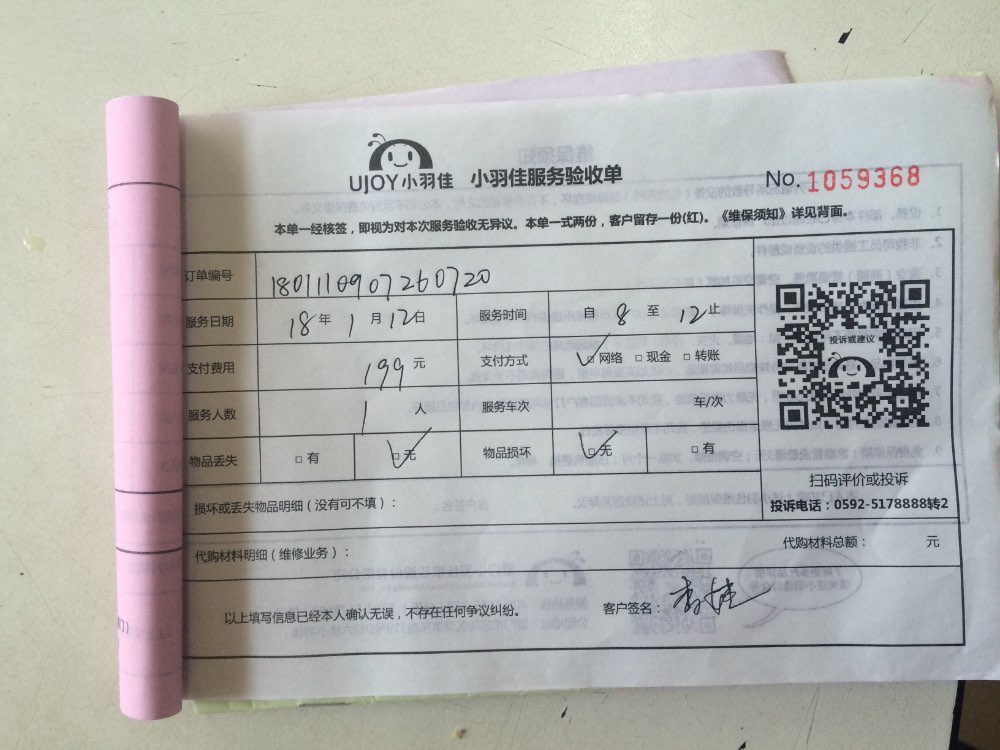 UJOY小羽佳 小羽佳服务验收单 No.1059368
本单一经核签，即视为对本次服务验收无异议。本单一式两份，客户留存一份(红)。《维保须知》详见背面。
订单编号 1801110907260720
服务日期 18年1月12日 服务时间 自8至12止
支付费用 199元 支付方式 ☑网络 □现金 □转账
服务人数 1人 服务车次 车/次
物品丢失 □有 ☑无 物品损坏 ☑无 □有
投诉或建议
扫码评价或投诉
投诉电话：0592-5178888转2
损坏或丢失物品明细（没有可不填）：
代购材料明细（维修业务）： 代购材料总额： 元
以上填写信息已经本人确认无误，不存在任何争议纠纷。 客户签名：